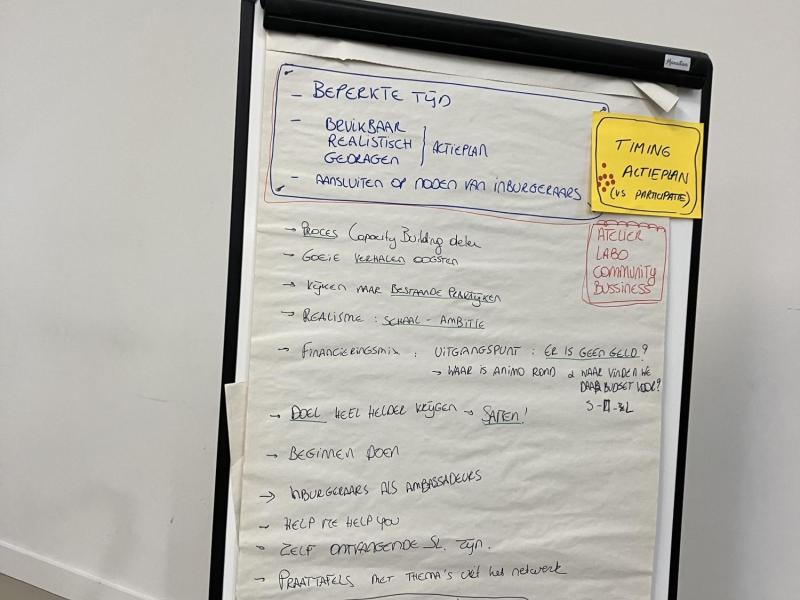 - BEPERKTE TIJD
- BRUIKBAAR
REALISTISCH } ACTIEPLAN
GEDRAGEN
- AANSLUITEN OP NODEN VAN INBURGERAARS
TIMING
ACTIEPLAN
(VS PARTICIPATIE)
ATELIER
LABO
COMMUNITY
BUSSINESS
→ PROCES Capacity Building delen
- GOEIE VERHALEN OOGSTEN
→ KIJKEN NAAR BESTAANDE PRAKTIJKEN
→ REALISME : SCHAAL - AMBITIE
- FINANCIERINGSMIX : UITGANGSPUNT : ER IS GEEN GELD?
→ WAAR IS ANIMO ROND & WAAR VINDEN WE
DAAR BUDGET VOOR?
→ DOEL HEEL HELDER KRIJGEN → SAMEN!
→ BEGINNEN DOEN
→ INBURGERAARS ALS AMBASSADEURS
- HELP ME HELP YOU
- ZELF ONTVANGENDE SL. ZIJN.
→ PRAATTAFELS MET THEMA'S uit het netwerk